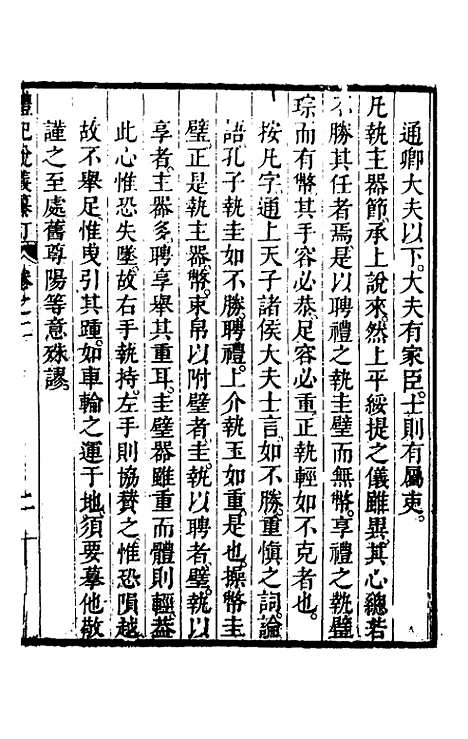 通卿大夫以下。大夫有家臣。士則有屬吏。
凡執主器節。承上說來。然上平綏提之儀雖異。其心總若
不勝其任者焉。是以聘禮之執圭璧而無幣。享禮之執璧
琮而有幣。其手容必恭。足容必重。正執輕如不克者也。
按凡字。通上天子諸侯大夫士言。如不勝。重愼之詞。論
語孔子執圭如不勝。聘禮。上介執玉如重。是也。操幣圭
璧。正是執主器幣。束帛以附璧者。圭。執以聘者。璧。執以
享者。主器多。聘享舉其重耳。圭璧器雖重而體則輕。葢
此心惟恐失墜。故右手執持。左手則協賛之。惟恐隕越
故不舉足。惟曳引其踵。如車輪之運于地。須要摹他敬
謹之至處。舊尊陽等意殊謬。
禮記說義纂訂 卷之二